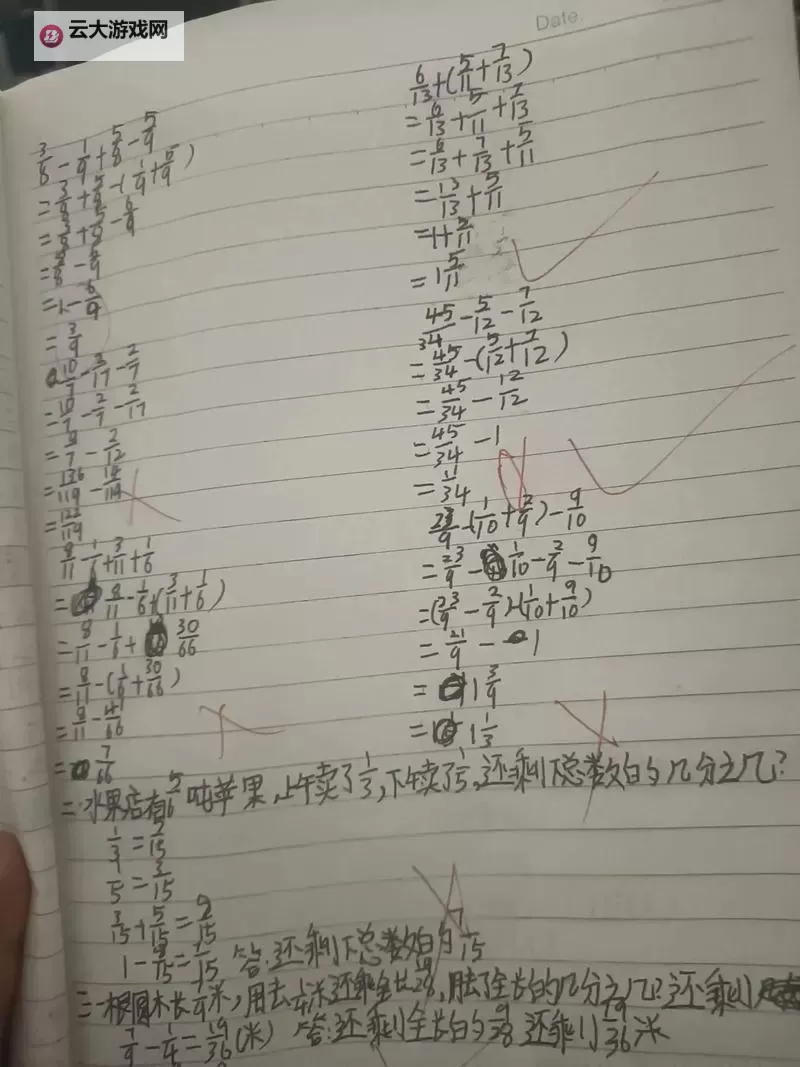 云大游戏网
Date.
3/8 - 1/9 + 5/8 - 5/9
= 3/8 + 5/8 - (1/9 + 5/9)
= 3/8 + 5/8 - 6/9
= 8/8 - 6/9
= 1 - 6/9
= 3/9
10/7 - 3/17 - 2/7
= 10/7 - 2/7 - 2/17
= 8/7 - 2/12
= 136/119 - 14/119
= 122/119
8/11 - 1/6 + 3/11 + 1/6
= 8/11 - 1/6 + (3/11 + 1/6)
= 8/11 - 1/6 + 30/66
= 8/11 - (1/6 + 30/66)
= 8/11 - 41/66
= 7/66
6/13 + (5/11 + 7/13)
= 6/13 + 5/11 + 7/13
= 6/13 + 7/13 + 5/11
= 13/13 + 5/11
= 1 + 5/11
= 1 5/11
45/34 - 5/12 - 7/12
= 45/34 - (5/12 + 7/12)
= 45/34 - 12/12
= 45/34 - 1
= 11/34
23/9 - (1/10 + 2/9) - 9/10
= 23/9 - 1/10 - 2/9 - 9/10
= (23/9 - 2/9) - (1/10 + 9/10)
= 21/9 - 1
= 1 3/9
= 1 1/3
二水果店有5/6吨苹果,上午卖了1/3,下午卖了1/5,还乘下总数白勺几分之几?
1/3 = 5/15
1/5 = 3/15
3/15 + 5/15 = 8/15
1 - 8/15 = 7/15 答:还乘下总数白勺7/15
三一根圆木长7/9米,用去1/4米还乘全长,用去了全长白勺几分之几?还乘
7/9 - 1/4 = 19/36(米) 答:还乘全长白勺9/28还乘19/36米